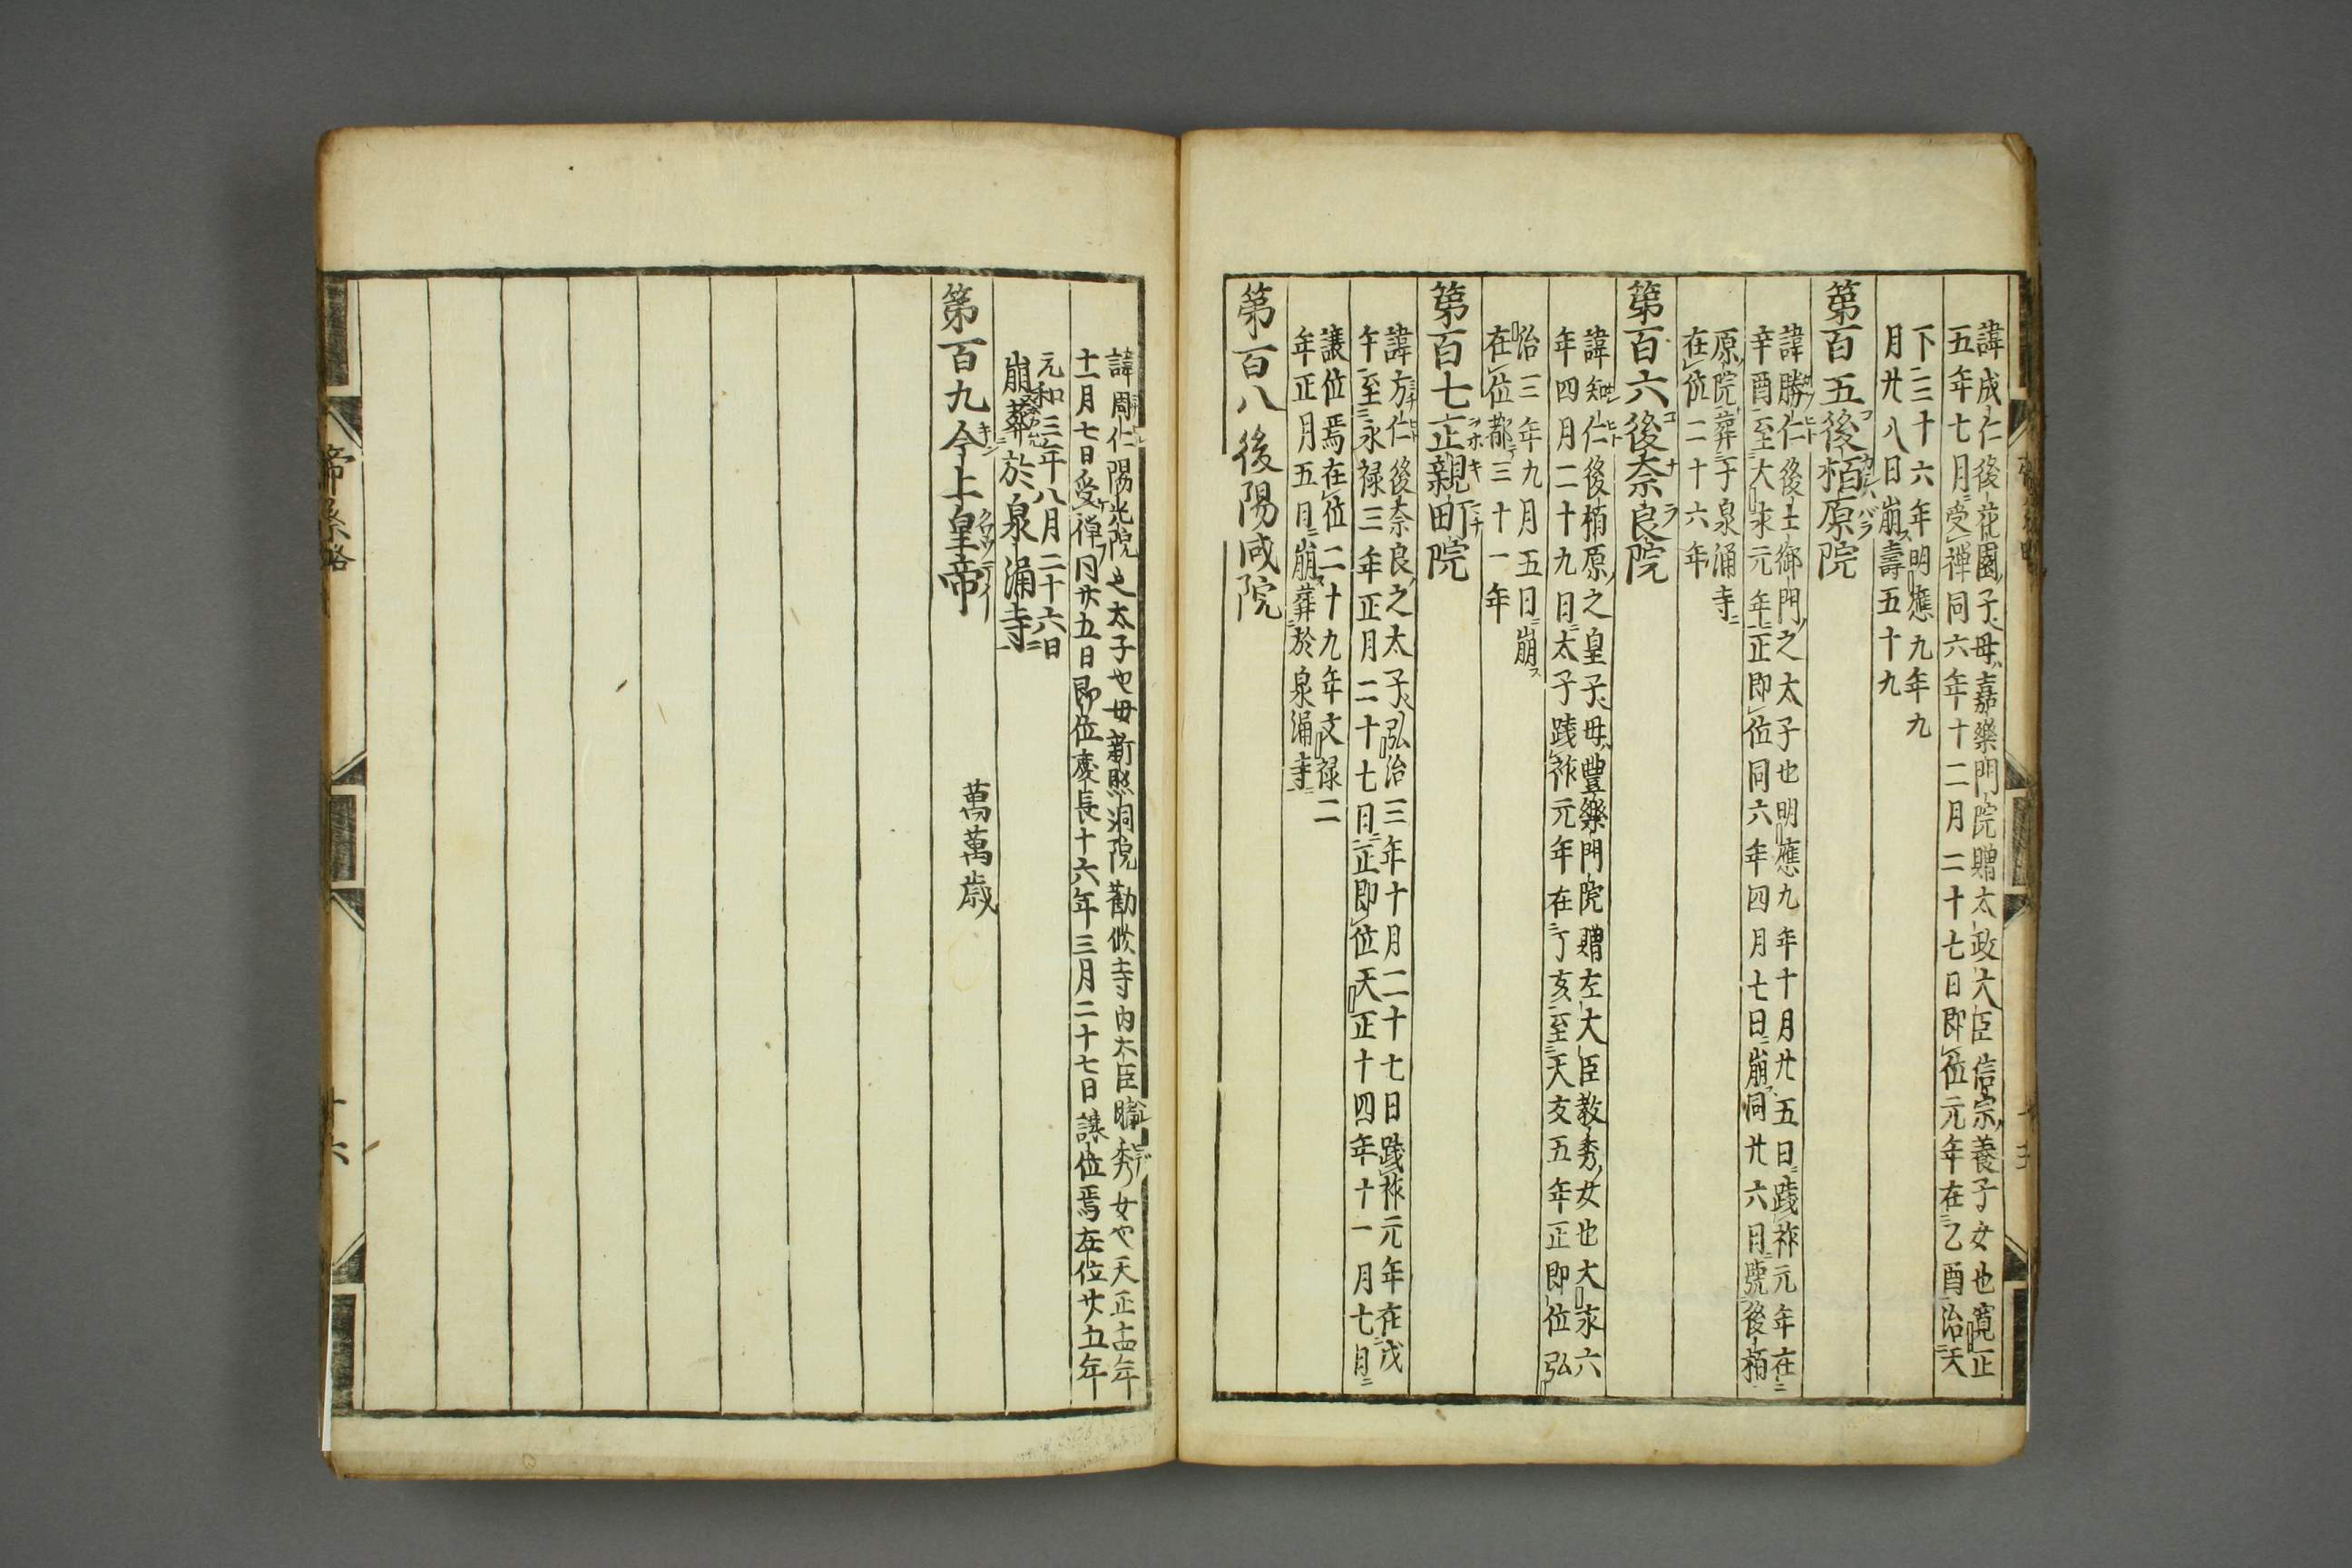 諱成仁後花園ノ子母ハ嘉樂門院贈太政大臣信宗ノ養子女也寛正
五年七月ニ受禪同六年十二月二十七日即位元年在乙酉治天
下三十六年明應九年九
月廿八日崩ス壽五十九
第百五後栢原院
諱勝仁後土御門ノ之太子也明應九年十月廿五日ニ踐祚元年在
辛酉至大永元年ニ正即位同六年四月七日ニ崩同廿六日ニ號後栢
原ノ院ト葬于泉涌寺
在位二十六年
第百六後奈良院
諱知仁後栢原ノ之皇子母ハ豐樂門院贈左大臣教秀ノ女也大永六
年四月二十九日ニ太子踐祚元年在丁亥至天文五年正即位弘
治三年九月五日ニ崩ス
在位都テ三十一年
第百七正親町院
諱方仁後奈良ノ之太子弘治三年十月二十七日踐祚元年在戊
午至永禄三年正月二十七日ニ正即位天正十四年十一月七日ニ
讓位焉在位二十九年文禄二
年正月五日ニ崩ス葬於泉涌寺
第百八後陽成院
諱周仁陽光院之太子也母新照洞院勸修寺內大臣晴秀ノ女也天正十四年
十一月七日受禅同廿五日即位慶長十六年三月二十七日讓位焉在位廿五年
元和三年八月二十六日
崩葬於泉涌寺
第百九今上皇帝 萬萬歳
帝系略
十六